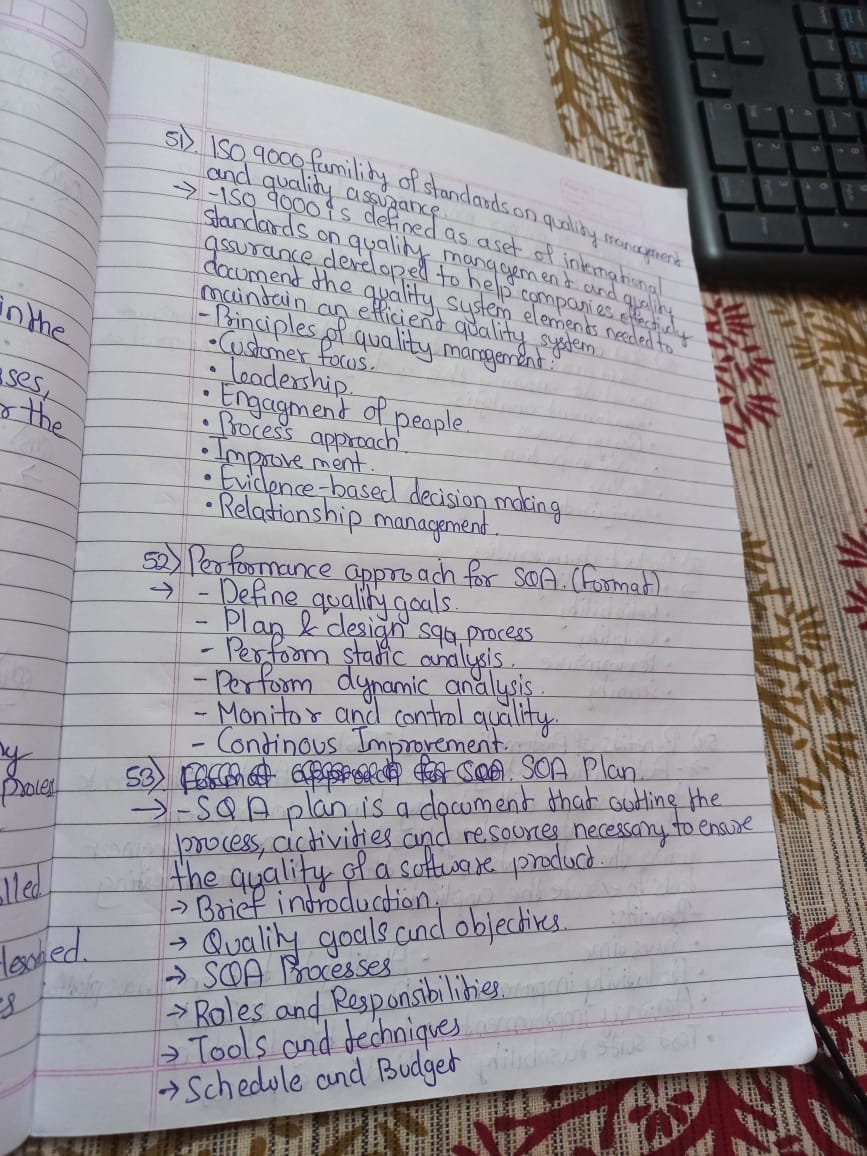 51) ISO 9000 famility of standards on quality management
and quality assurance.
→ - ISO 9000 is defined as a set of international
standards on quality management and quality
assurance developed to help companies effectively
document the quality system elements needed to
maintain an efficient quality system.
- Principles of quality mangement:
• Customer focus.
• Leadership.
• Engagment of people.
• Process approach.
• Improvement.
• Evidence-based decision making
• Relationship management.
52) Performance approach for SQA. (Format)
→ - Define quality goals.
- Plan & design sqa process
- Perform static analysis.
- Perform dynamic analysis.
- Monitor and control quality.
- Continous Improvement.
53) SQA Plan.
→ - SQA plan is a document that outline the
process, activities and resources necessary to ensure
the quality of a software product.
→ Brief introduction.
→ Quality goals and objectives.
→ SQA Processes
→ Roles and Responsibilities.
→ Tools and techniques
→ Schedule and Budget
in the
the